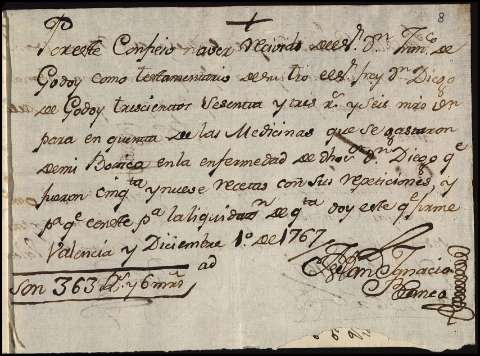 8
Por este Confieso haver recivido del Sr. Dn. Franco. de
Godoy como testamentario de su tio el Sr. frey Dn. Diego
de Godoy trescientos Sesenta y tres Rs. y seis mrs. vn
para en quenta de las Medicinas que se gastaron
de mi Botica en la enfermedad de dho Sr. Dn. Diego qe
fueron cinqta y nueve recetas con sus repeticiones, y
pa qe conste pa la liquidazn de qta doy este qe firme
Valencia y Diciembre 1o. de 1767
Son 363 Rs. y 6 mrs
Ignacio